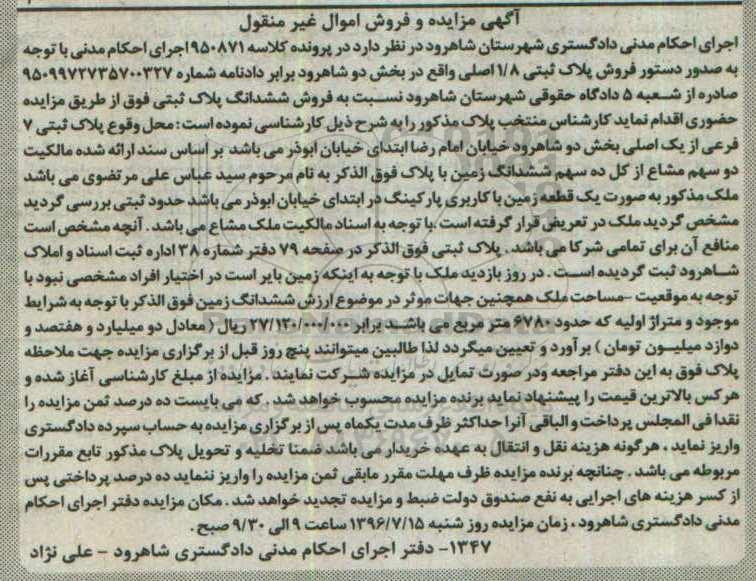 آگهی مزایده و فروش اموال غیر منقول
اجرای احکام مدنی دادگستری شهرستان شاهرود در نظر دارد در پرونده کلاسه ۹۵۰۸۷۱ اجرای احکام مدنی با توجه
به صدور دستور فروش پلاک ثبتی ۱/۸ اصلی واقع در بخش دو شاهرود برابر دادنامه شماره ۹۵۰۹۹۷۲۷۳۵۷۰۰۳۲۷
صادره از شعبه ۵ دادگاه حقوقی شهرستان شاهرود نسبت به فروش ششدانگ پلاک ثبتی فوق از طریق مزایده
حضوری اقدام نماید کارشناس منتخب پلاک مذکور را به شرح ذیل کارشناسی نموده است: محل وقوع پلاک ثبتی ۷
فرعی از یک اصلی بخش دو شاهرود خیابان امام رضا ابتدای خیابان ابوذر می باشد بر اساس سند ارائه شده مالکیت
دو سهم مشاع از کل ده سهم ششدانگ زمین با پلاک فوق الذکر به نام مرحوم سید عباس علی مرتضوی می باشد
ملک مذکور به صورت یک قطعه زمین با کاربری پارکینگ در ابتدای خیابان ابوذر می باشد حدود ثبتی بررسی گردید
مشخص گردید ملک در تعریض قرار گرفته است .با توجه به اسناد مالکیت ملک مشاع می باشد . آنچه مشخص است
منافع آن برای تمامی شرکا می باشد . پلاک ثبتی فوق الذکر در صفحه ۷۹ دفتر شماره ۳۸ اداره ثبت اسناد و املاک
شاهرود ثبت گردیده است . در روز بازدید ملک با توجه به اینکه زمین بایر است در اختیار افراد مشخصی نبود با
توجه به موقعیت -مساحت ملک همچنین جهات موثر در موضوع ارزش ششدانگ زمین فوق الذکر با توجه به شرایط
موجود و متراژ اولیه که حدود ۶۷۸۰ متر مربع می باشد برابر ۲۷/۱۲۰/۰۰۰/۰۰۰ ریال ( معادل دو میلیارد و هفتصد و
دوازد میلیون تومان ) برآورد و تعیین میگردد لذا طالبین میتوانند پنج روز قبل از برگزاری مزایده جهت ملاحظه
پلاک فوق به این دفتر مراجعه ودر صورت تمایل در مزایده شرکت نمایند . مزایده از مبلغ کارشناسی آغاز شده و
هرکس بالاترین قیمت را پیشنهاد نماید برنده مزایده محسوب خواهد شد . که می بایست ده درصد ثمن مزایده را
نقدا فی المجلس پرداخت و الباقی آنرا حداکثر ظرف مدت یکماه پس از برگزاری مزایده به حساب سپرده دادگستری
واریز نماید ، هرگونه هزینه نقل و انتقال به عهده خریدار می باشد ضمنا تخلیه و تحویل پلاک مذکور تابع مقررات
مربوطه می باشد . چنانچه برنده مزایده ظرف مهلت مقرر مابقی ثمن مزایده را واریز ننماید ده درصد پرداختی پس
از کسر هزینه های اجرایی به نفع صندوق دولت ضبط و مزایده تجدید خواهد شد . مکان مزایده دفتر اجرای احکام
مدنی دادگستری شاهرود ، زمان مزایده روز شنبه ۱۳۹۶/۷/۱۵ ساعت ۹ الی ۹/۳۰ صبح .
۱۳۴۷- دفتر اجرای احکام مدنی دادگستری شاهرود - علی نژاد